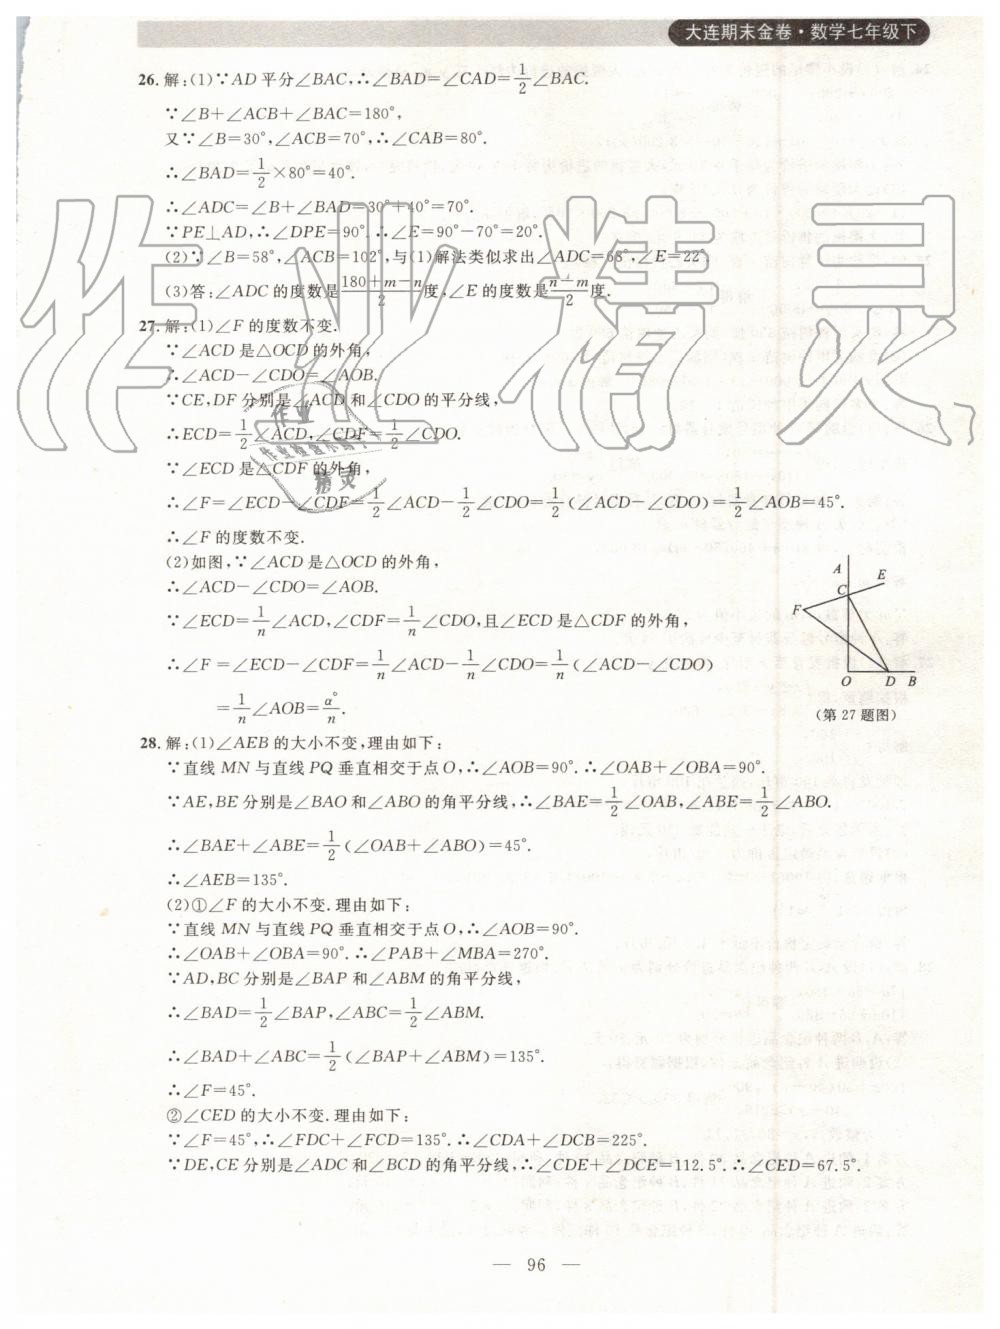 大连期末金卷·数学七年级下
26.解:(1)∵AD平分∠BAC,∴∠BAD=∠CAD=1/2∠BAC.
∵∠B+∠ACB+∠BAC=180°,
又∵∠B=30°,∠ACB=70°,∴∠CAB=80°.
∴∠BAD=1/2×80°=40°.
∴∠ADC=∠B+∠BAD=30°+40°=70°.
∵PE⊥AD,∴∠DPE=90°.∴∠E=90°-70°=20°.
(2)∵∠B=58°,∠ACB=102°,与(1)解法类似求出∠ADC=68°,∠E=22°.
(3)答:∠ADC的度数是(180+m-n)/2度,∠E的度数是(n-m)/2度.
27.解:(1)∠F的度数不变.
∵∠ACD是△OCD的外角,
∴∠ACD-∠CDO=∠AOB.
∵CE,DF分别是∠ACD和∠CDO的平分线,
∴ECD=1/2∠ACD,∠CDF=1/2∠CDO.
∵∠ECD是△CDF的外角,
∴∠F=∠ECD-∠CDF=1/2∠ACD-1/2∠CDO=1/2(∠ACD-∠CDO)=1/2∠AOB=45°.
∴∠F的度数不变.
(2)如图,∵∠ACD是△OCD的外角,
∴∠ACD-∠CDO=∠AOB.
∵∠ECD=1/n∠ACD,∠CDF=1/n∠CDO,且∠ECD是△CDF的外角,
∴∠F=∠ECD-∠CDF=1/n∠ACD-1/n∠CDO=1/n(∠ACD-∠CDO)
=1/n∠AOB=α°/n.
A
E
C
F
O D B
(第27题图)
28.解:(1)∠AEB的大小不变,理由如下:
∵直线MN与直线PQ垂直相交于点O,∴∠AOB=90°.∴∠OAB+∠OBA=90°.
∵AE,BE分别是∠BAO和∠ABO的角平分线,∴∠BAE=1/2∠OAB,∠ABE=1/2∠ABO.
∴∠BAE+∠ABE=1/2(∠OAB+∠ABO)=45°.
∴∠AEB=135°.
(2)①∠F的大小不变.理由如下:
∵直线MN与直线PQ垂直相交于点O,∴∠AOB=90°.
∴∠OAB+∠OBA=90°.∴∠PAB+∠MBA=270°.
∵AD,BC分别是∠BAP和∠ABM的角平分线,
∴∠BAD=1/2∠BAP,∠ABC=1/2∠ABM.
∴∠BAD+∠ABC=1/2(∠BAP+∠ABM)=135°.
∴∠F=45°.
②∠CED的大小不变.理由如下:
∵∠F=45°,∴∠FDC+∠FCD=135°.∴∠CDA+∠DCB=225°.
∵DE,CE分别是∠ADC和∠BCD的角平分线,∴∠CDE+∠DCE=112.5°.∴∠CED=67.5°.
— 96 —
作业精灵